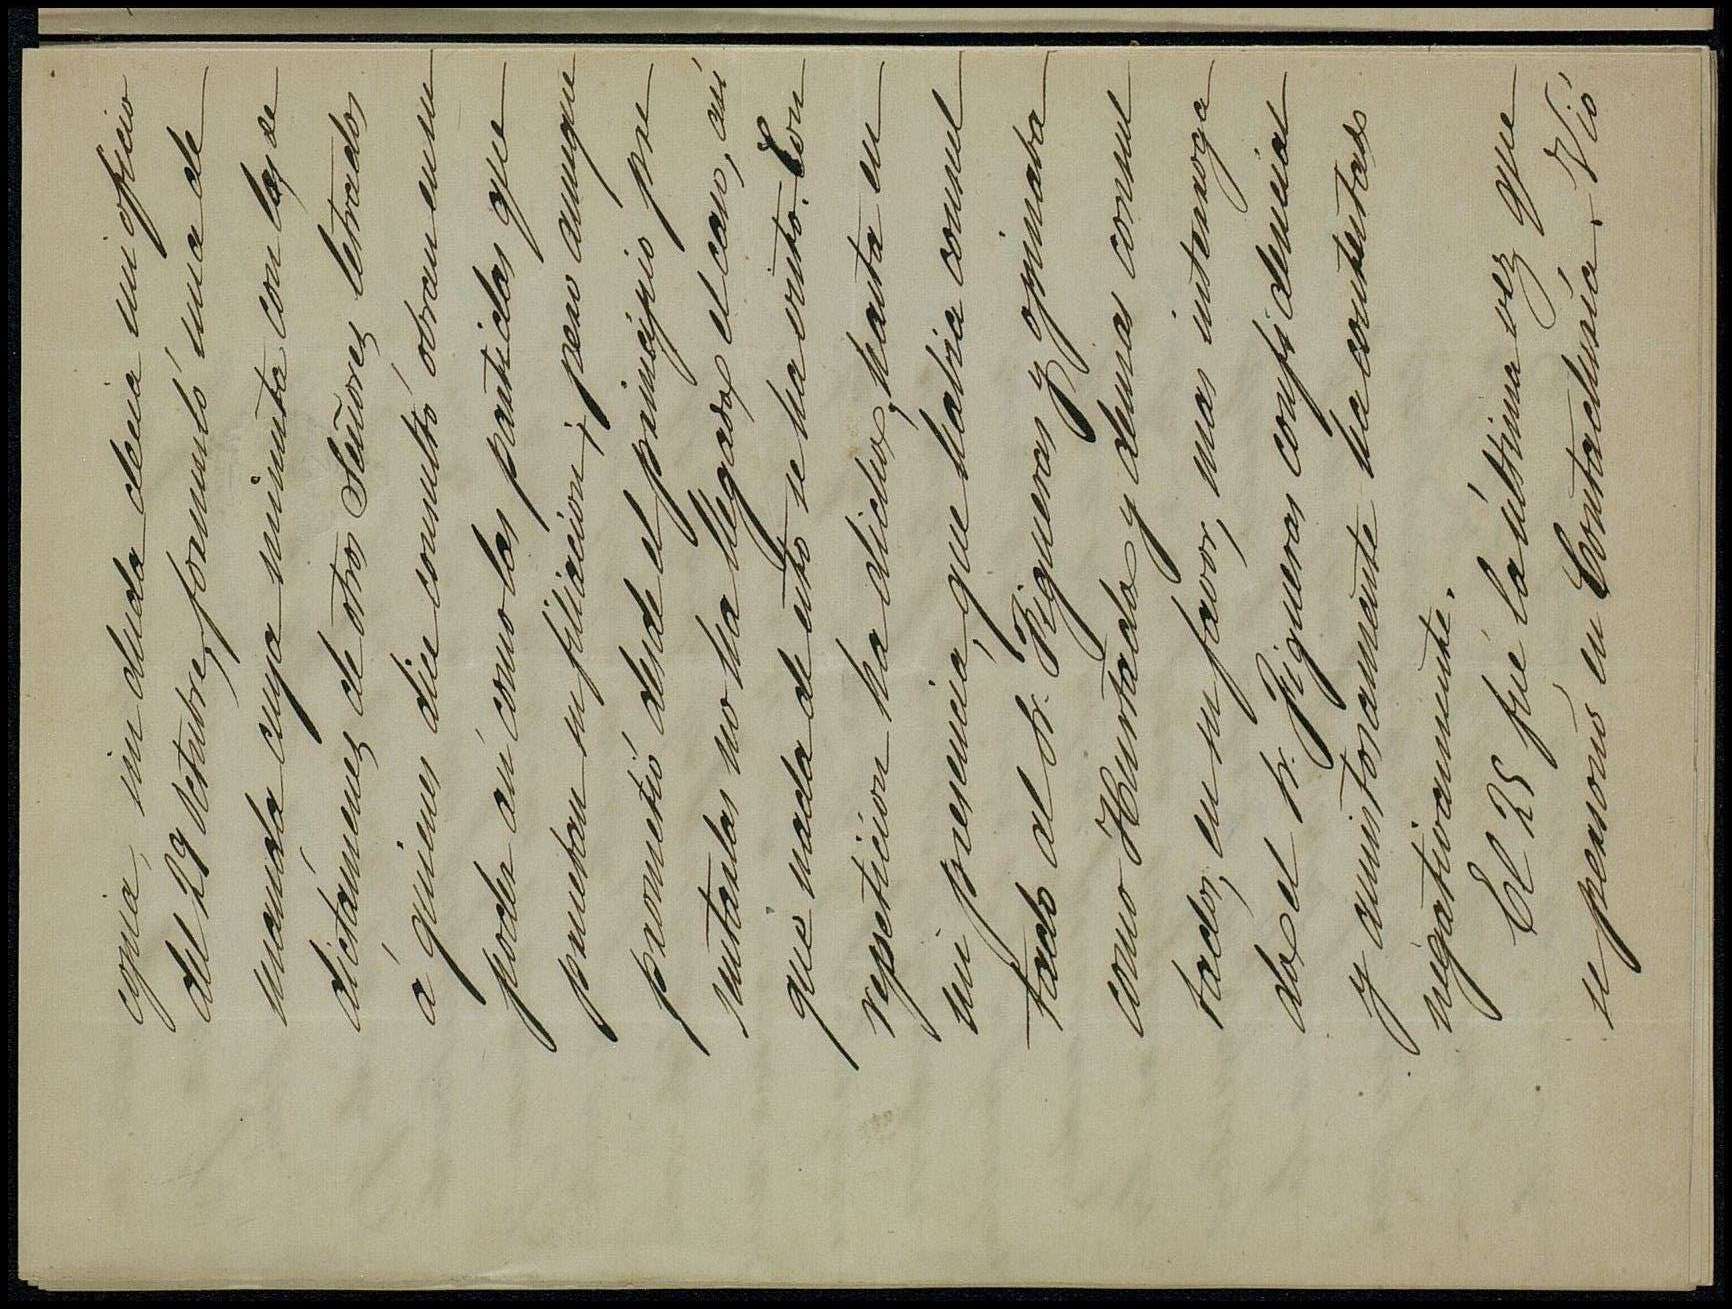 copia, sin duda decia mi oficio
del 29 Octubre, formuló una de
manda cuya minuta con las de
dictámenes de otros Señores letrados
á quienes dice consultó obran en su
poder así como las partidas que
prueban su filiacion; pero aunque
prometió desde el principio pre
sentarlas no ha llegado el caso, así
que nada de esto se ha visto. Con
repeticion ha dicho, hasta en
mi presencia, que habia consul
tado al Sr. Figueras y opinaba
como Hurtado y demas consul
tados, en su favor, mas interroga
do el Sr. Figueras confidencial
y amistosamente ha contestado
negativamente.
El 25 fué la última vez que
se personó en Contaduria. Vió